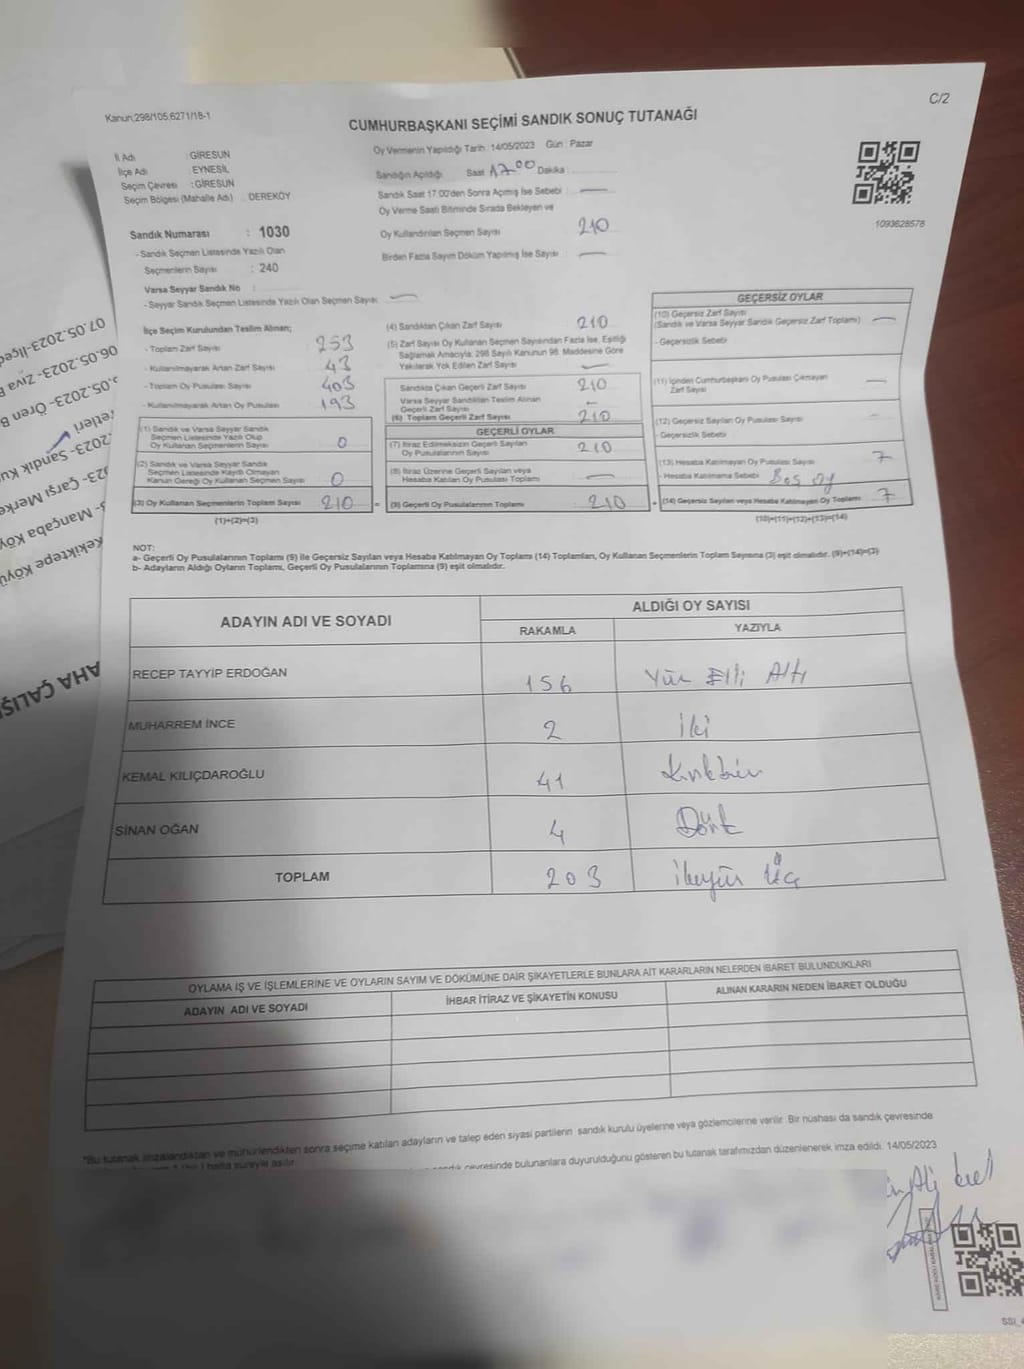 Kanun;298/105;6271/18-1
C/2
CUMHURBAŞKANI SEÇİMİ SANDIK SONUÇ TUTANAĞI
İl Adı : GİRESUN
İlçe Adı : EYNESİL
Seçim Çevresi : GİRESUN
Seçim Bölgesi (Mahalle Adı) : DEREKÖY
Sandık Numarası : 1030
- Sandık Seçmen Listesinde Yazılı Olan
Seçmenlerin Sayısı : 240
Varsa Seyyar Sandık No :
- Seyyar Sandık Seçmen Listesinde Yazılı Olan Seçmen Sayısı :
Oy Vermenin Yapıldığı Tarih : 14/05/2023 Gün : Pazar
Sandığın Açıldığı Saat 17.00 Dakika :
Sandık Saat 17:00'den Sonra Açılmış İse Sebebi :
Oy Verme Saati Bitiminde Sırada Bekleyen ve
Oy Kullandırılan Seçmen Sayısı 210
Birden Fazla Sayım Döküm Yapılmış İse Sayısı :
1093628578
İlçe Seçim Kurulundan Teslim Alınan;
- Toplam Zarf Sayısı 253
- Kullanılmayarak Artan Zarf Sayısı 43
- Toplam Oy Pusulası Sayısı 403
- Kullanılmayarak Artan Oy Pusulası 193
(1) Sandık ve Varsa Seyyar Sandık
Seçmen Listesinde Yazılı Olup
Oy Kullanan Seçmenlerin Sayısı 0
(2) Sandık ve Varsa Seyyar Sandık
Seçmen Listesinde Kayıtlı Olmayan
Kanun Gereği Oy Kullanan Seçmen Sayısı 0
(3) Oy Kullanan Seçmenlerin Toplam Sayısı 210 =
(1)+(2)=(3)
(4) Sandıktan Çıkan Zarf Sayısı 210
(5) Zarf Sayısı Oy Kullanan Seçmen Sayısından Fazla İse, Eşitliği
Sağlamak Amacıyla; 298 Sayılı Kanunun 98. Maddesine Göre
Yakılarak Yok Edilen Zarf Sayısı
Sandıkta Çıkan Geçerli Zarf Sayısı 210
Varsa Seyyar Sandıktan Teslim Alınan
Geçerli Zarf Sayısı
(6) Toplam Geçerli Zarf Sayısı 210
GEÇERLİ OYLAR
(7) İtiraz Edilmeksizin Geçerli Sayılan
Oy Pusulalarının Sayısı 210
(8) İtiraz Üzerine Geçerli Sayılan veya
Hesaba Katılan Oy Pusulası Toplamı
(9) Geçerli Oy Pusulalarının Toplamı 210 +
GEÇERSİZ OYLAR
(10) Geçersiz Zarf Sayısı
(Sandık ve Varsa Seyyar Sandık Geçersiz Zarf Toplamı)
- Geçersizlik Sebebi
(11) İçinden Cumhurbaşkanı Oy Pusulası Çıkmayan
Zarf Sayısı
(12) Geçersiz Sayılan Oy Pusulası Sayısı
- Geçersizlik Sebebi
(13) Hesaba Katılmayan Oy Pusulası Sayısı 7
- Hesaba Katılmama Sebebi Boş oy
(14) Geçersiz Sayılan veya Hesaba Katılmayan Oy Toplamı 7
(10)+(11)+(12)+(13)=(14)
NOT:
a- Geçerli Oy Pusulalarının Toplamı (9) ile Geçersiz Sayılan veya Hesaba Katılmayan Oy Toplamı (14) Toplamları, Oy Kullanan Seçmenlerin Toplam Sayısına (3) eşit olmalıdır. (9)+(14)=(3)
b- Adayların Aldığı Oyların Toplamı, Geçerli Oy Pusulalarının Toplamına (9) eşit olmalıdır.
ADAYIN ADI VE SOYADI ALDIĞI OY SAYISI
RAKAMLA YAZIYLA
RECEP TAYYİP ERDOĞAN 156 Yüz Elli Altı
MUHARREM İNCE 2 İki
KEMAL KILIÇDAROĞLU 41 Kırkbir
SİNAN OĞAN 4 Dört
TOPLAM 203 ikiyüz Üç
OYLAMA İŞ VE İŞLEMLERİNE VE OYLARIN SAYIM VE DÖKÜMÜNE DAİR ŞİKAYETLERLE BUNLARA AİT KARARLARIN NELERDEN İBARET BULUNDUKLARI
ADAYIN ADI VE SOYADI İHBAR İTİRAZ VE ŞİKAYETİN KONUSU ALINAN KARARIN NEDEN İBARET OLDUĞU
*Bu tutanak imzalandıktan ve mühürlendikten sonra seçime katılan adayların ve talep eden siyasi partilerin sandık kurulu üyelerine veya gözlemcilerine verilir. Bir nüshası da sandık çevresinde
hafta süreyle asılır.
çevresinde bulunanlara duyurulduğunu gösteren bu tutanak tarafımızdan düzenlenerek imza edildi. 14/05/2023
07.05.2023-İlçed
06.05.2023- Ziva
.05.2023- Ören B
.2023- Sandık Ku
23- Çarşı Merke
- Mançaba Köy
Kekiktepe Köyü
AHA ÇALIŞI